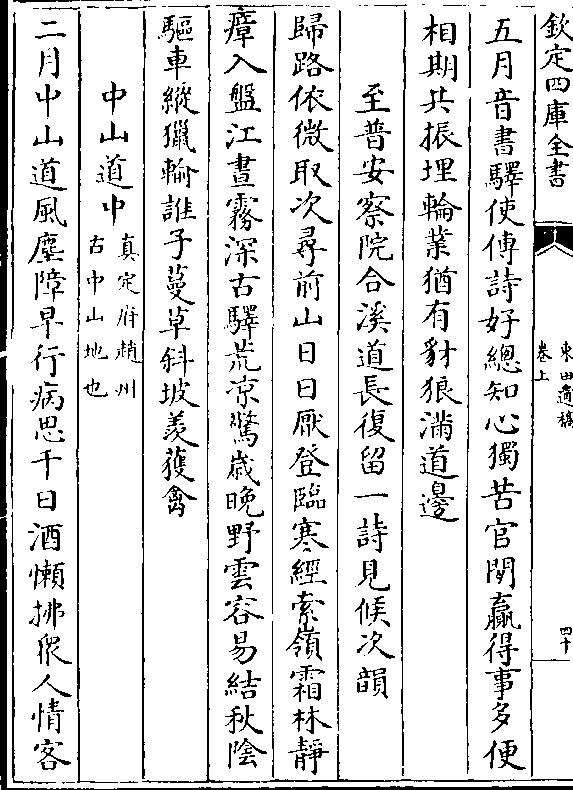 欽定四庫全書
東田遺稿
卷上
四十
五月音書驛使傳詩好總知心獨苦官閒贏得事多便
相期共振埋輪業猶有豺狼滿道邊
至普安察院合溪道長復留一詩見候次韻
歸路依微取次尋前山日日厭登臨寒經索嶺霜林靜
瘴入盤江晝霧深古驛荒凉驚歳晚野雲容易結秋陰
驅車縱獵輸誰子蔓草斜坡羡獲禽
中山道中
真定府趙州
古中山地也
二月中山道風塵障早行病思千日酒懶拂衆人情客